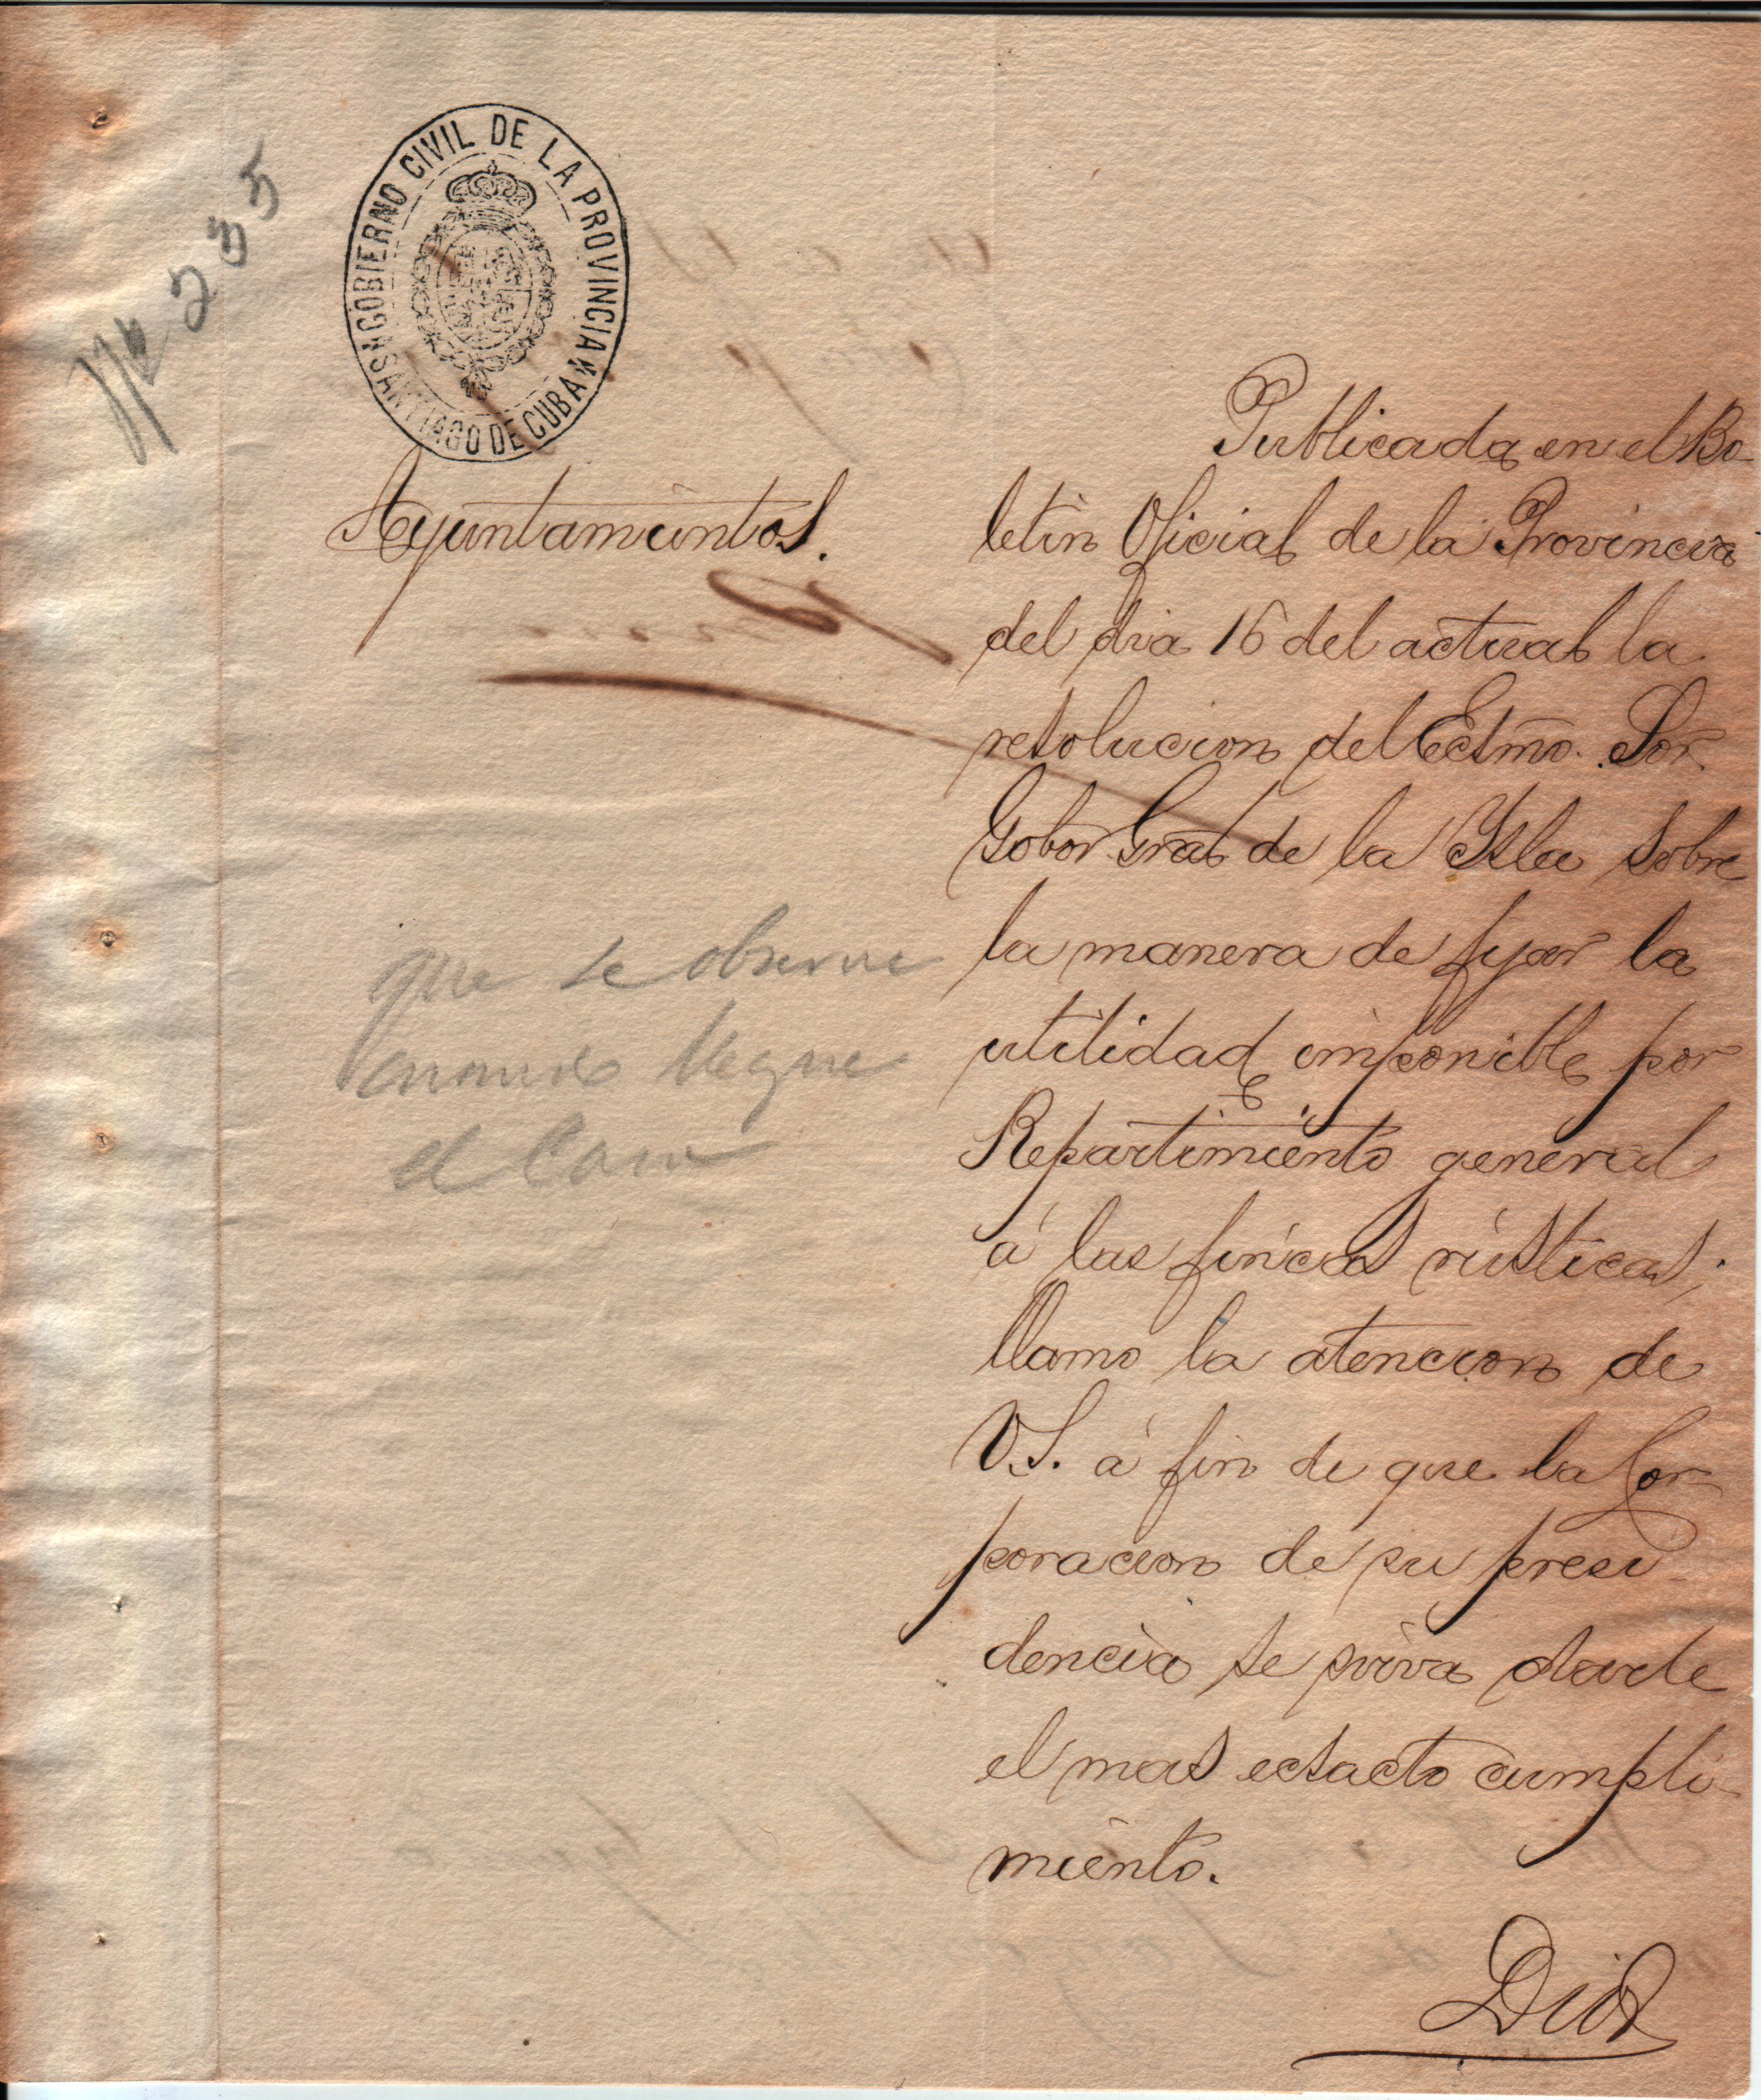 Nº 235
GOBIERNO CIVIL DE LA PROVINCIA
SANTIAGO DE CUBA
Ayuntamientos.
Publicada en el Bo-
letin Oficial de la Provincia
del dia 16 del actual la
resolucion del Ecsmo. Sor.
Gobor. Gral de la Ysla sobre
la manera de fijar la
utilidad imponible por
Repartimiento general
á las fincas rústicas;
llamo la atencion de
V.S. á fin de que la Cor-
poracion de su presi-
dencia se sirva darle
el mas ecsacto cumpli-
miento.
Dios
que se observe
cuando llegue
el caso